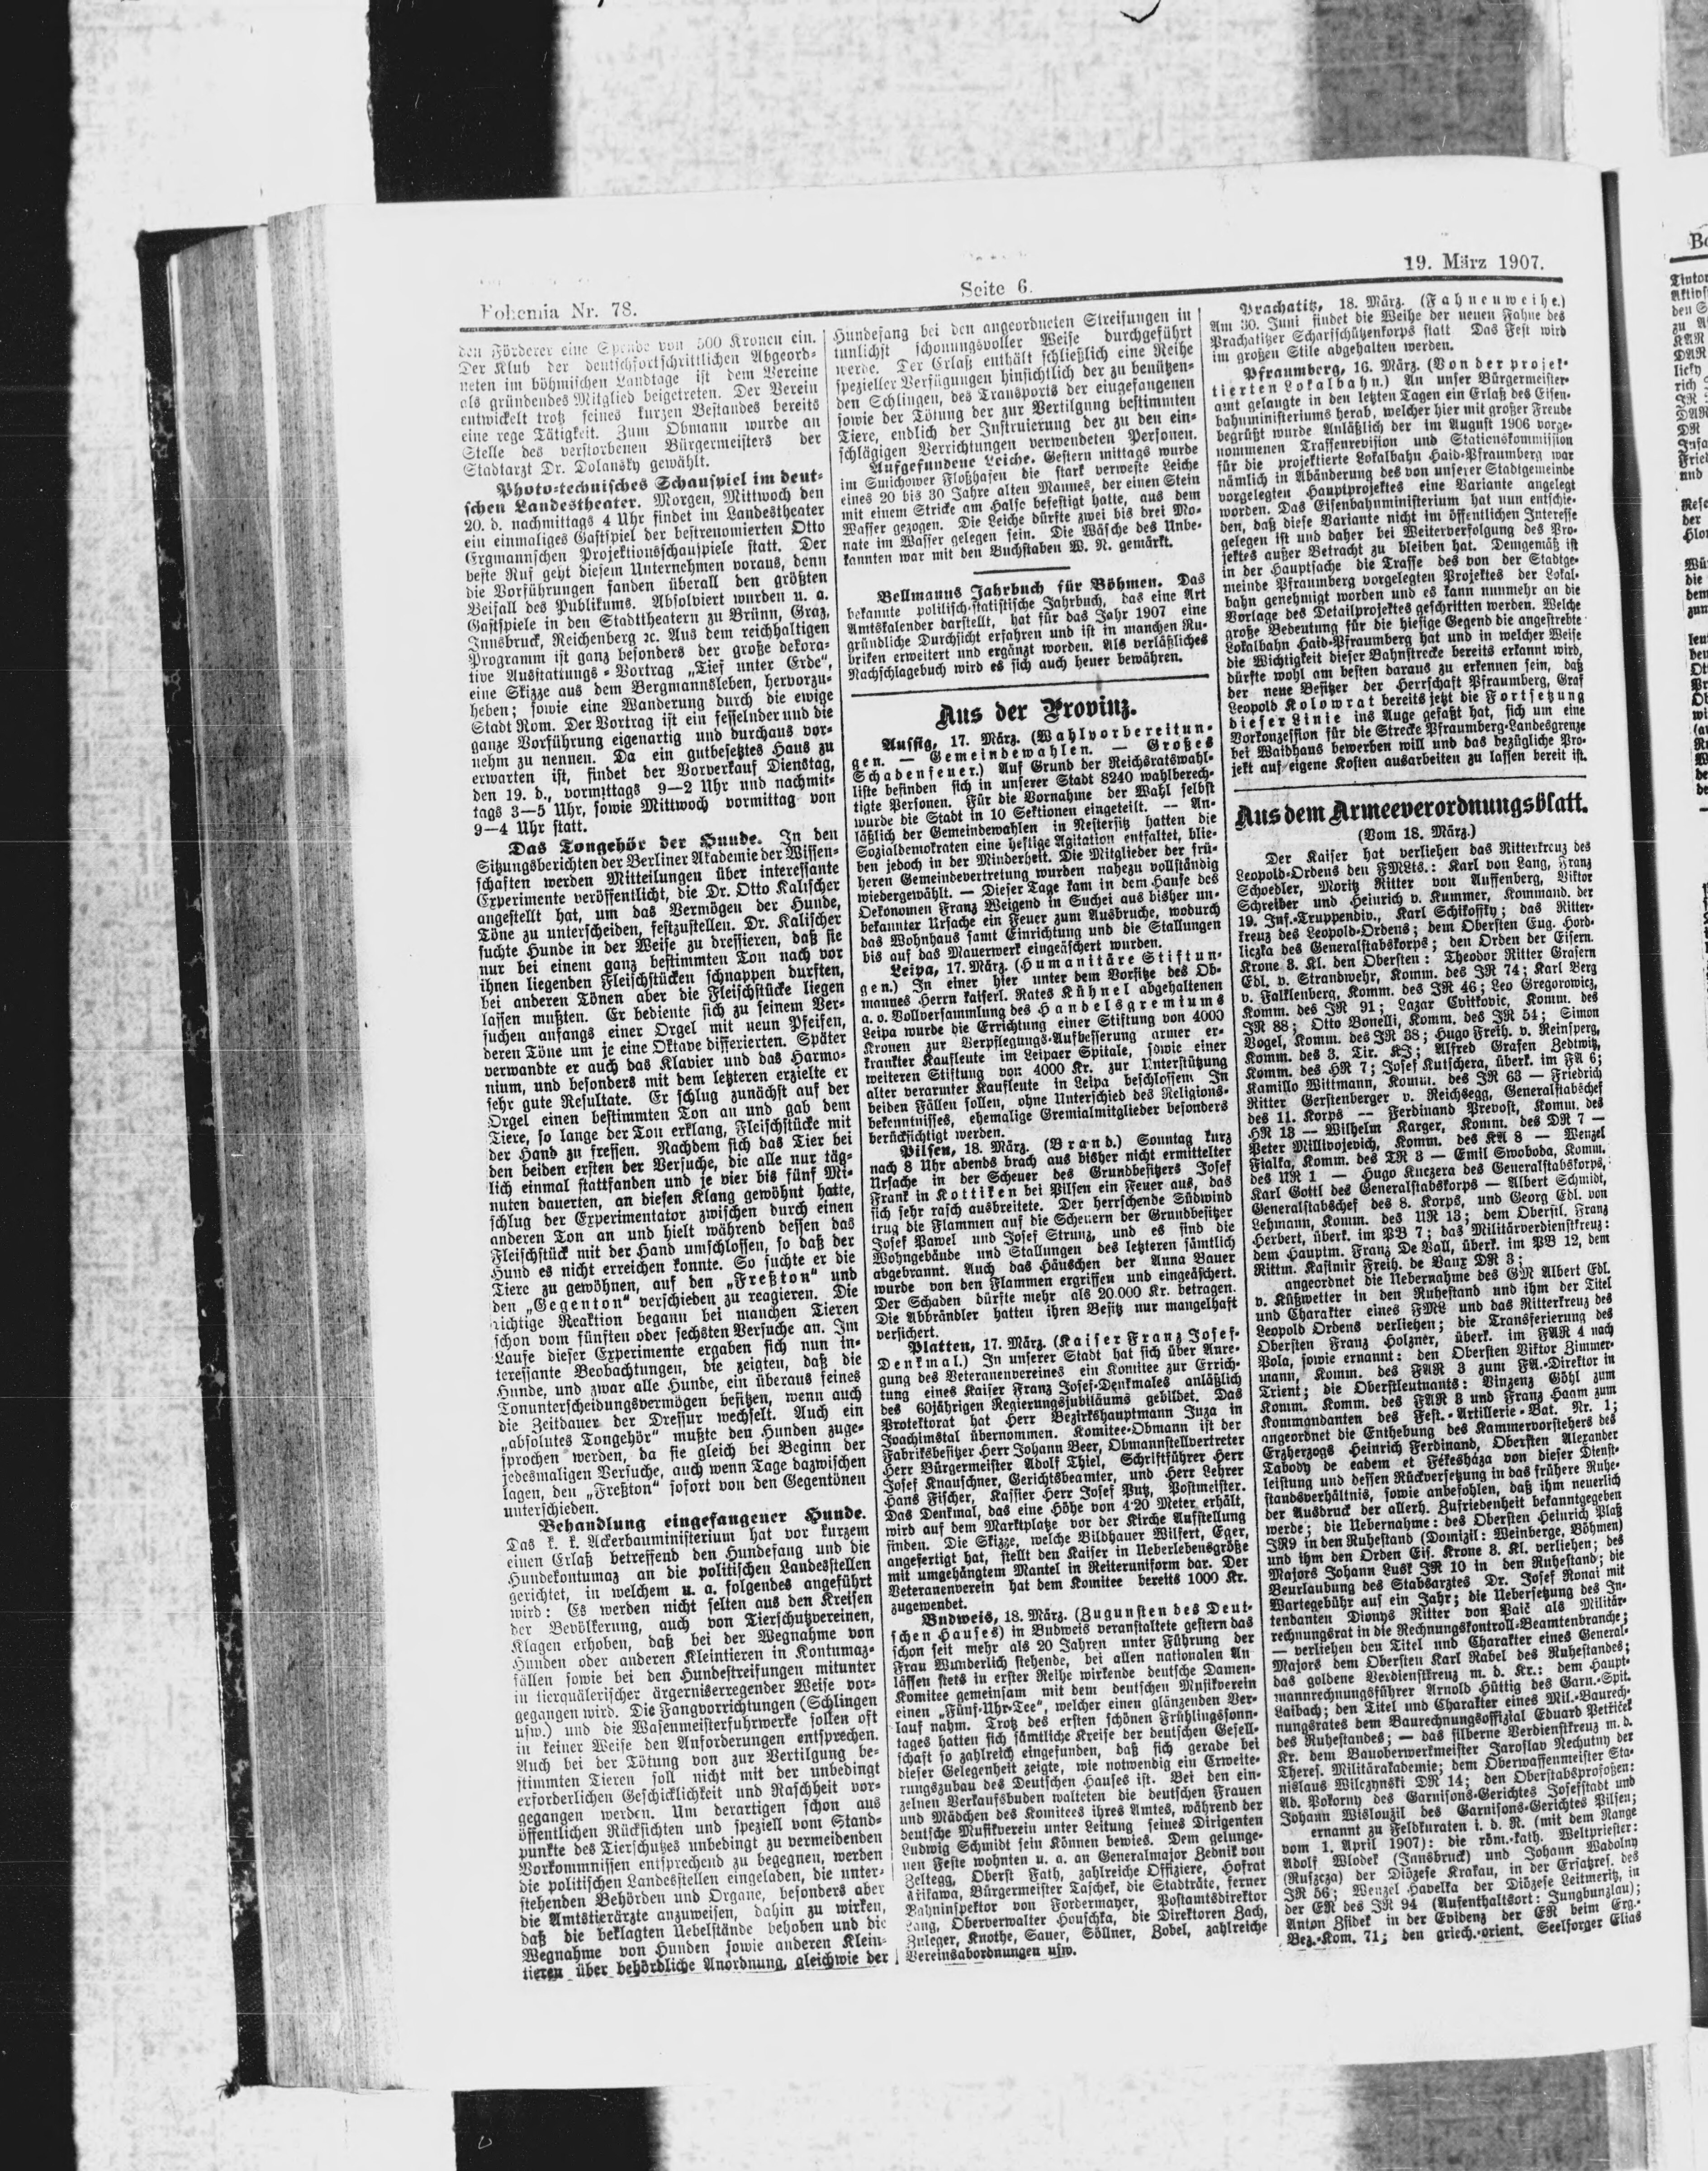 Bohemia Nr. 78.
Seite 6.
19. März 1907.
den Förderer eine Spende von 500 Kronen ein.
Der Klub der deutschfortschrittlichen Abgeord-
neten im böhmischen Landtage ist dem Vereine
als gründendes Mitglied beigetreten. Der Verein
entwickelt trotz seines kurzen Bestandes bereits
eine rege Tätigkeit. Zum Obmann wurde an
Stelle des verstorbenen Bürgermeisters der
Stadtarzt Dr. Dolansky gewählt.
Photo-technisches Schauspiel im deut-
schen Landestheater. Morgen, Mittwoch den
20. d. nachmittags 4 Uhr findet im Landestheater
ein einmaliges Gastspiel der bestrenomierten Otto
Ergmannschen Projektionsschauspiele statt. Der
beste Ruf geht diesem Unternehmen voraus, denn
die Vorführungen fanden überall den größten
Beifall des Publikums. Absolviert wurden u. a.
Gastspiele in den Stadttheatern zu Brünn, Graz,
Innsbruck, Reichenberg ꝛc. Aus dem reichhaltigen
Programm ist ganz besonders der große dekora-
tive Ausstattungs-Vortrag „Tief unter Erde“,
eine Skizze aus dem Bergmannsleben, hervorzu-
heben; sowie eine Wanderung durch die ewige
Stadt Rom. Der Vortrag ist ein fesselnder und die
ganze Vorführung eigenartig und durchaus vor-
nehm zu nennen. Da ein gutbesetztes Haus zu
erwarten ist, findet der Vorverkauf Dienstag,
den 19. d., vormittags 9—2 Uhr und nachmit-
tags 3—5 Uhr, sowie Mittwoch vormittag von
9—4 Uhr statt.
Das Tongehör der Hunde. In den
Sitzungsberichten der Berliner Akademie der Wissen-
schaften werden Mitteilungen über interessante
Experimente veröffentlicht, die Dr. Otto Kalischer
angestellt hat, um das Vermögen der Hunde,
Töne zu unterscheiden, festzustellen. Dr. Kalischer
suchte Hunde in der Weise zu dressieren, daß sie
nur bei einem ganz bestimmten Ton nach vor
ihnen liegenden Fleischstücken schnappen durften,
bei anderen Tönen aber die Fleischstücke liegen
lassen mußten. Er bediente sich zu seinem Ver-
suchen anfangs einer Orgel mit neun Pfeifen,
deren Töne um je eine Oktave differierten. Später
verwandte er auch das Klavier und das Harmo-
nium, und besonders mit dem letzteren erzielte er
sehr gute Resultate. Er schlug zunächst auf der
Orgel einen bestimmten Ton an und gab dem
Tiere, so lange der Ton erklang, Fleischstücke mit
der Hand zu fressen. Nachdem sich das Tier bei
den beiden ersten der Versuche, die alle nur täg-
lich einmal stattfanden und je vier bis fünf Mi-
nuten dauerten, an diesen Klang gewöhnt hatte,
schlug der Experimentator zwischen durch einen
anderen Ton an und hielt während dessen das
Fleischstück mit der Hand umschlossen, so daß der
Hund es nicht erreichen konnte. So suchte er die
Tiere zu gewöhnen, auf den „Freßton“ und
den „Gegenton“ verschieden zu reagieren. Die
richtige Reaktion begann bei manchen Tieren
schon vom fünften oder sechsten Versuche an. Im
Laufe dieser Experimente ergaben sich nun in-
teressante Beobachtungen, die zeigten, daß die
Hunde, und zwar alle Hunde, ein überaus feines
Tonunterscheidungsvermögen besitzen, wenn auch
die Zeitdauer der Dressur wechselt. Auch ein
„absolutes Tongehör“ mußte den Hunden zuge-
sprochen werden, da sie gleich bei Beginn der
jedesmaligen Versuche, auch wenn Tage dazwischen
lagen, den „Freßton“ sofort von den Gegentönen
unterschieden.
Behandlung eingefangener Hunde.
Das k. k. Ackerbauministerium hat vor kurzem
einen Erlaß betreffend den Hundefang und die
Hundekontumaz an die politischen Landesstellen
gerichtet, in welchem u. a. folgendes angeführt
wird: Es werden nicht selten aus den Kreisen
der Bevölkerung, auch von Tierschutzvereinen,
Klagen erhoben, daß bei der Wegnahme von
Hunden oder anderen Kleintieren in Kontumaz-
fällen sowie bei den Hundestreifungen mitunter
in tierquälerischer ärgerniserregender Weise vor-
gegangen wird. Die Fangvorrichtungen (Schlingen
usw.) und die Wasenmeisterfuhrwerke sollen oft
in keiner Weise den Anforderungen entsprechen.
Auch bei der Tötung von zur Vertilgung be-
stimmten Tieren soll nicht mit der unbedingt
erforderlichen Geschicklichkeit und Raschheit vor-
gegangen werden. Um derartigen schon aus
öffentlichen Rücksichten und speziell vom Stand-
punkte des Tierschutzes unbedingt zu vermeidenden
Vorkommnissen entsprechend zu begegnen, werden
die politischen Landesstellen eingeladen, die unter-
stehenden Behörden und Organe, besonders aber
die Amtstierärzte anzuweisen, dahin zu wirken,
daß die beklagten Uebelstände behoben und die
Wegnahme von Hunden sowie anderen Klein-
tieren über behördliche Anordnung, gleichwie der
Hundefang bei den angeordneten Streifungen in
tunlichst schonungsvoller Weise durchgeführt
werde. Der Erlaß enthält schließlich eine Reihe
spezieller Verfügungen hinsichtlich der zu benützen-
den Schlingen, des Transports der eingefangenen
sowie der Tötung der zur Vertilgung bestimmten
Tiere, endlich der Instruierung der zu den ein-
schlägigen Verrichtungen verwendeten Personen.
Aufgefundene Leiche. Gestern mittags wurde
im Smichower Floßhafen die stark verweste Leiche
eines 20 bis 30 Jahre alten Mannes, der einen Stein
mit einem Stricke am Halse befestigt hatte, aus dem
Wasser gezogen. Die Leiche dürfte zwei bis drei Mo-
nate im Wasser gelegen sein. Die Wäsche des Unbe-
kannten war mit den Buchstaben W. N. gemärkt.
Bellmanns Jahrbuch für Böhmen. Das
bekannte politisch-statistische Jahrbuch, das eine Art
Amtskalender darstellt, hat für das Jahr 1907 eine
gründliche Durchsicht erfahren und ist in manchen Ru-
briken erweitert und ergänzt worden. Als verläßliches
Nachschlagebuch wird es sich auch heuer bewähren.
Aus der Provinz.
Aussig, 17. März. (Wahlvorbereitun-
gen. — Gemeindewahlen. — Großes
Schadenfeuer.) Auf Grund der Reichsratswahl-
liste befinden sich in unserer Stadt 8240 wahlberech-
tigte Personen. Für die Vornahme der Wahl selbst
wurde die Stadt in 10 Sektionen eingeteilt. — An-
läßlich der Gemeindewahlen in Nestersitz hatten die
Sozialdemokraten eine heftige Agitation entfaltet, blie-
ben jedoch in der Minderheit. Die Mitglieder der frü-
heren Gemeindevertretung wurden nahezu vollständig
wiedergewählt. — Dieser Tage kam in dem Hause des
Oekonomen Franz Weigend in Suchei aus bisher un-
bekannter Ursache ein Feuer zum Ausbruche, wodurch
das Wohnhaus samt Einrichtung und die Stallungen
bis auf das Mauerwerk eingeäschert wurden.
Leipa, 17. März. (Humanitäre Stiftun-
gen.) In einer hier unter dem Vorsitze des Ob-
mannes Herrn kaiserl. Rates Kühnel abgehaltenen
a. o. Vollversammlung des Handelsgremiums
Leipa wurde die Errichtung einer Stiftung von 4000
Kronen zur Verpflegungs-Aufbesserung armer er-
krankter Kaufleute im Leipaer Spitale, sowie einer
weiteren Stiftung von 4000 Kr. zur Unterstützung
alter verarmter Kaufleute in Leipa beschlossen. In
beiden Fällen sollen, ohne Unterschied des Religions-
bekenntnisses, ehemalige Gremialmitglieder besonders
berücksichtigt werden.
Pilsen, 18. März. (Brand.) Sonntag kurz
nach 8 Uhr abends brach aus bisher nicht ermittelter
Ursache in der Scheuer des Grundbesitzers Josef
Frank in Kottiken bei Pilsen ein Feuer aus, das
sich sehr rasch ausbreitete. Der herrschende Südwind
trug die Flammen auf die Scheuern der Grundbesitzer
Josef Pawel und Josef Strunz, und es sind die
Wohngebäude und Stallungen des letzteren sämtlich
abgebrannt. Auch das Häuschen der Anna Bauer
wurde von den Flammen ergriffen und eingeäschert.
Der Schaden dürfte mehr als 20.000 Kr. betragen.
Die Abbrändler hatten ihren Besitz nur mangelhaft
versichert.
Platten, 17. März. (Kaiser Franz Josef-
Denkmal.) In unserer Stadt hat sich über Anre-
gung des Veteranenvereines ein Komitee zur Errich-
tung eines Kaiser Franz Josef-Denkmales anläßlich
des 60jährigen Regierungsjubiläums gebildet. Das
Protektorat hat Herr Bezirkshauptmann Juza in
Joachimstal übernommen. Komitee-Obmann ist der
Fabriksbesitzer Herr Johann Beer, Obmannstellvertreter
Herr Bürgermeister Adolf Thiel, Schriftführer Herr
Josef Knauschner, Gerichtsbeamter, und Herr Lehrer
Hans Fischer, Kassier Herr Josef Putz, Postmeister.
Das Denkmal, das eine Höhe von 4·20 Meter erhält,
wird auf dem Marktplatze vor der Kirche Aufstellung
finden. Die Skizze, welche Bildhauer Wilfert, Eger,
angefertigt hat, stellt den Kaiser in Ueberlebensgröße
mit umgehängtem Mantel in Reiteruniform dar. Der
Veteranenverein hat dem Komitee bereits 1000 Kr.
zugewendet.
Budweis, 18. März. (Zugunsten des Deut-
schen Hauses) in Budweis veranstaltete gestern das
schon seit mehr als 20 Jahren unter Führung der
Frau Wunderlich stehende, bei allen nationalen An-
lässen stets in erster Reihe wirkende deutsche Damen-
Komitee gemeinsam mit dem deutschen Musikverein
einen „Fünf-Uhr-Tee“, welcher einen glänzenden Ver-
lauf nahm. Trotz des ersten schönen Frühlingssonn-
tages hatten sich sämtliche Kreise der deutschen Gesell-
schaft so zahlreich eingefunden, daß sich gerade bei
dieser Gelegenheit zeigte, wie notwendig ein Erweite-
rungszubau des Deutschen Hauses ist. Bei den ein-
zelnen Verkaufsbuden walteten die deutschen Frauen
und Mädchen des Komitees ihres Amtes, während der
deutsche Musikverein unter Leitung seines Dirigenten
Ludwig Schmidt sein Können bewies. Dem gelunge-
nen Feste wohnten u. a. an Generalmajor Zednik von
Zeltegg, Oberst Fath, zahlreiche Offiziere, Hofrat
Bürgermeister Taschek, die Stadträte, ferner
Bahninspektor von Fordermayer, Postamtsdirektor
Lang, Oberverwalter Houschka, die Direktoren Zach,
Zuleger, Knothe, Sauer, Söllner, Zobel, zahlreiche
Vereinsabordnungen usw.
Prachatitz, 18. März. (Fahnenweihe.)
Am 30. Juni findet die Weihe der neuen Fahne des
Prachatitzer Scharfschützenkorps statt Das Fest wird
im großen Stile abgehalten werden.
Pfraumberg, 16. März. (Von der projek-
tierten Lokalbahn.) An unser Bürgermeister-
amt gelangte in den letzten Tagen ein Erlaß des Eisen-
bahnministeriums herab, welcher hier mit großer Freude
begrüßt wurde Anläßlich der im August 1906 vorge-
nommenen Trassenrevision und Stationskommission
für die projektierte Lokalbahn Haid-Pfraumberg war
nämlich in Abänderung des von unserer Stadtgemeinde
vorgelegten Hauptprojektes eine Variante angelegt
worden. Das Eisenbahnministerium hat nun entschie-
den, daß diese Variante nicht im öffentlichen Interesse
gelegen ist und daher bei Weiterverfolgung des Pro-
jektes außer Betracht zu bleiben hat. Demgemäß ist
in der Hauptsache die Trasse des von der Stadtge-
meinde Pfraumberg vorgelegten Projektes der Lokal-
bahn genehmigt worden und es kann nunmehr an die
Vorlage des Detailprojektes geschritten werden. Welche
große Bedeutung für die hiesige Gegend die angestrebte
Lokalbahn Haid-Pfraumberg hat und in welcher Weise
die Wichtigkeit dieser Bahnstrecke bereits erkannt wird,
dürfte wohl am besten daraus zu erkennen sein, daß
der neue Besitzer der Herrschaft Pfraumberg, Graf
Leopold Kolowrat bereits jetzt die Fortsetzung
dieser Linie ins Auge gefaßt hat, sich um eine
Vorkonzession für die Strecke Pfraumberg-Landesgrenze
bei Waidhaus bewerben will und das bezügliche Pro-
jekt auf eigene Kosten ausarbeiten zu lassen bereit ist.
Aus dem Armeeverordnungsblatt.
(Vom 18. März.)
Der Kaiser hat verliehen das Ritterkreuz des
Leopold-Ordens den FMLts.: Karl von Lang, Franz
Schoedler, Moritz Ritter von Auffenberg, Viktor
Schreiber und Heinrich v. Kummer, Kommand. der
19. Inf.-Truppendiv., Karl Schikofsky; das Ritter-
kreuz des Leopold-Ordens; dem Obersten Eug. Hord-
liczka des Generalstabskorps; den Orden der Eisern.
Krone 3. Kl. den Obersten: Theodor Ritter Grasern
Edl. v. Strandwehr, Komm. des IR 74; Karl Berg
v. Falklenberg, Komm. des IR 46; Leo Gregorowicz,
Komm. des IR 91; Lazar Cvitkovic, Komm. des
IR 88; Otto Bonelli, Komm. des IR 54; Simon
Vogel, Komm. des IR 38; Hugo Freih. v. Reinsperg,
Komm. des 3. Tir. KJ; Alfred Grafen Zedtwitz,
Komm. des HR 7; Josef Kutschera, überk. im FA 6;
Kamillo Wittmann, Komm. des IR 63 — Friedrich
Ritter Gerstenberger v. Reichsegg, Generalstabschef
des 11. Korps — Ferdinand Prevost, Komm. des
HR 13 — Wilhelm Karger, Komm. des DR 7 —
Peter Millivojevich, Komm. des KA 8 — Wenzel
Fialka, Komm. des TR 3 — Emil Swoboda, Komm.
des UR 1 — Hugo Kuczera des Generalstabskorps,
Karl Gottl des Generalstabskorps — Albert Schmidt,
Generalstabschef des 8. Korps, und Georg Edl. von
Lehmann, Komm. des UR 13; dem Oberstl. Franz
Herbert, überk. im PB 7; das Militärverdienstkreuz:
dem Hauptm. Franz De Vall, überk. im PB 12, dem
Rittm. Kasimir Freih. de Vaux DR 3;
angeordnet die Uebernahme des GM Albert Edl.
v. Küßwetter in den Ruhestand und ihm der Titel
und Charakter eines FML und das Ritterkreuz des
Leopold Ordens verliehen; die Transferierung des
Obersten Franz Holzner, überk. im FAR 4 nach
Pola, sowie ernannt: den Obersten Viktor Zimmer-
mann, Komm. des FAR 3 zum FA.-Direktor in
Trient; die Oberstleutnants: Vinzenz Göhl zum
Komm. Komm. des FAR 8 und Franz Haam zum
Kommandanten des Fest.-Artillerie-Bat. Nr. 1;
angeordnet die Enthebung des Kammervorstehers des
Erzherzogs Heinrich Ferdinand, Obersten Alexander
Tabody de eadem et Fékesháza von dieser Dienst-
leistung und dessen Rückversetzung in das frühere Ruhe-
standsverhältnis, sowie anbefohlen, daß ihm neuerlich
der Ausdruck der allerh. Zufriedenheit bekanntgegeben
werde; die Uebernahme: des Obersten Heinrich Plaß
IR9 in den Ruhestand (Domizil: Weinberge, Böhmen)
und ihm den Orden Eis. Krone 3. Kl. verliehen; des
Majors Johann Lusk IR 10 in den Ruhestand; die
Beurlaubung des Stabsarztes Dr. Josef Ronai mit
Wartegebühr auf ein Jahr; die Uebersetzung des In-
tendanten Dionys Ritter von Paič als Militär-
rechnungsrat in die Rechnungskontroll-Beamtenbranche;
— verliehen den Titel und Charakter eines General-
Majors dem Obersten Karl Rabel des Ruhestandes;
das goldene Verdienstkreuz m. d. Kr.: dem Haupt-
mannrechnungsführer Arnold Hüttig des Garn.-Spit.
Laibach; den Titel und Charakter eines Mil.-Baurech-
nungsrates dem Baurechnungsoffizial Eduard Petříček
des Ruhestandes; — das silberne Verdienstkreuz m. d.
Kr. dem Bauoberwerkmeister Jaroslav Nechutny der
Theres. Militärakademie; dem Oberwaffenmeister Sta-
nislaus Wilczynski DR 14; den Oberstabsprofoßen:
Ad. Pokorny des Garnisons-Gerichtes Josefstadt und
Johann Wislouzil des Garnisons-Gerichtes Pilsen;
ernannt zu Feldkuraten i. d. R. (mit dem Range
vom 1. April 1907): die röm.-kath. Weltpriester:
Adolf Wlodek (Innsbruck) und Johann Wadolny
(Ruszcza) der Diözese Krakau, in der Ersatzres. des
IR 56; Wenzel Havelka der Diözese Leitmeritz, in
der ER des IR 94 (Aufenthaltsort: Jungbunzlau);
Anton Zsidek in der Evidenz der ER beim Erg.-
Bez.-Kom. 71; den griech.-orient. Seelsorger Elias